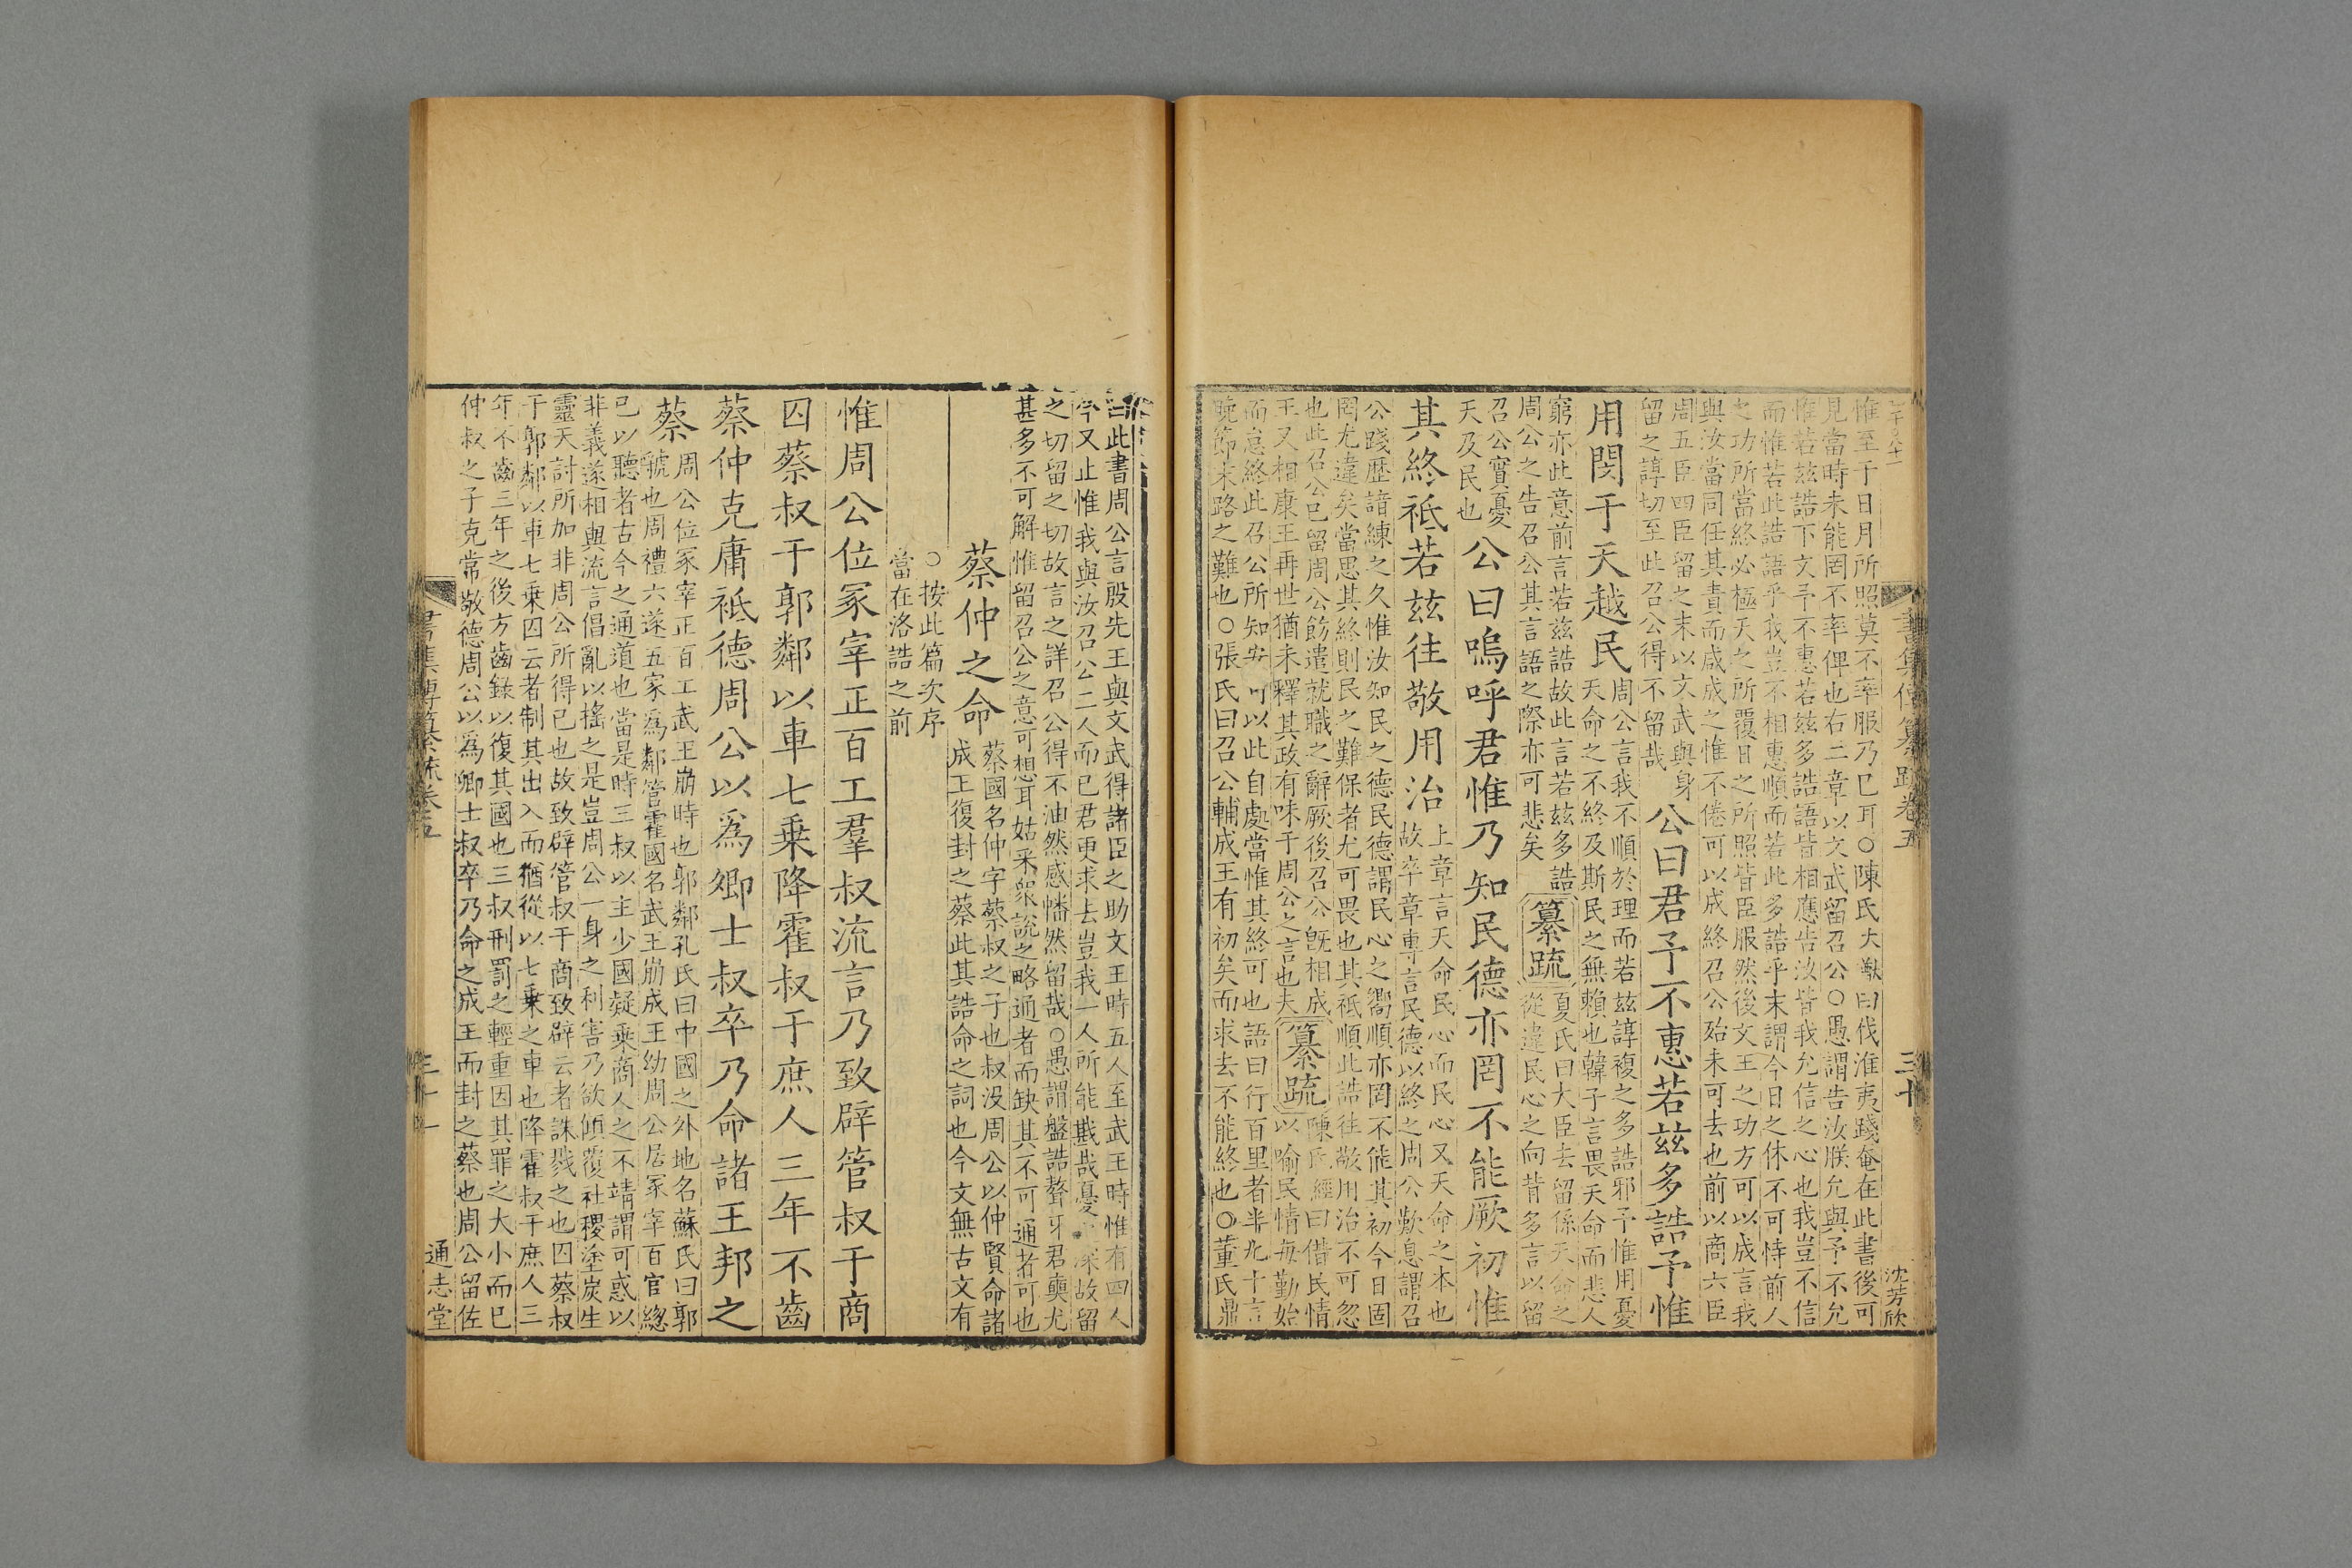 書集傳纂疏卷五
三十
沈芳欣
惟至于日月所照莫不率服乃已耳○陳氏大猷曰伐淮夷踐奄在此書後可
見當時未能罔不率俾也右二章以文武留召公○愚謂告汝朕允與予不允
惟若茲誥下文予不惠若茲多誥語皆相應告汝皆我允信之心也我豈不信
而惟若此誥語乎我豈不相惠順而若此多誥乎末謂今日之休不可恃前人
之功所當終必極天之所覆日之所照皆臣服然後文王之功方可以成言我
與汝當同任其責而咸成之惟不倦可以成終召公殆未可去也前以商六臣
周五臣四臣留之末以文武與身
留之諄切至此召公得不留哉
公曰君予不惠若茲多誥予惟
用閔于天越民
周公言我不順於理而若茲諄複之多誥邪予惟用憂
天命之不終及斯民之無賴也韓子言畏天命而悲人
窮亦此意前言若茲誥故此言若茲多誥
周公之告召公其言語之際亦可悲矣
纂疏
夏氏曰大臣去留係天命之
從違民心之向背多言以留
召公實憂
天及民也
公曰嗚呼君惟乃知民德亦罔不能厥初惟
其終祗若茲往敬用治
上章言天命民心而民心又天命之本也
故卒章專言民德以終之周公歎息謂召
公踐歷諳練之久惟汝知民之德民德謂民心之嚮順亦罔不能其初今日固
罔尤違矣當思其終則民之難保者尤可畏也其祗順此誥往敬用治不可忽
也此召公已留周公飭遣就職之辭厥後召公旣相成
王又相康王再世猶未釋其政有味于周公之言也夫
纂疏
陳氏經曰借民情
以喻民情每勤始
而怠終此召公所知安可以此自處當惟其終可也語曰行百里者半九十言
晚節末路之難也○張氏曰召公輔成王有初矣而求去不能終也○董氏鼎
曰此書周公言殷先王與文武得諸臣之助文王時五人至武王時惟有四人
今又止惟我與汝召公二人而已君更求去豈我一人所能戡哉憂深故留
之切留之切故言之詳召公得不油然感幡然留哉○愚謂盤誥聱牙君奭尤
甚多不可解惟留召公之意可想耳姑采衆說之略通者而缺其不可通者可也
蔡仲之命
蔡國名仲字蔡叔之子也叔没周公以仲賢命諸
成王復封之蔡此其誥命之詞也今文無古文有
○按此篇次序
當在洛誥之前
惟周公位冢宰正百工羣叔流言乃致辟管叔于商
囚蔡叔于郭鄰以車七乗降霍叔于庶人三年不齒
蔡仲克庸祗德周公以爲卿士叔卒乃命諸王邦之
蔡
周公位冢宰正百工武王崩時也郭鄰孔氏曰中國之外地名蘇氏曰郭
虢也周禮六遂五家爲鄰管霍國名武王崩成王幼周公居冢宰百官緫
已以聽者古今之通道也當是時三叔以主少國疑乗商人之不靖謂可惑以
非義遂相與流言倡亂以搖之是豈周公一身之利害乃欲傾覆社稷塗炭生
靈天討所加非周公所得已也故致辟管叔于商致辟云者誅戮之也囚蔡叔
于郭鄰以車七乗囚云者制其出入而猶從以七乗之車也降霍叔于庶人三
年不齒三年之後方齒錄以復其國也三叔刑罰之輕重因其罪之大小而已
仲叔之子克常敬德周公以爲卿士叔卒乃命之成王而封之蔡也周公留佐
書集傳纂疏卷五
三十一
通志堂